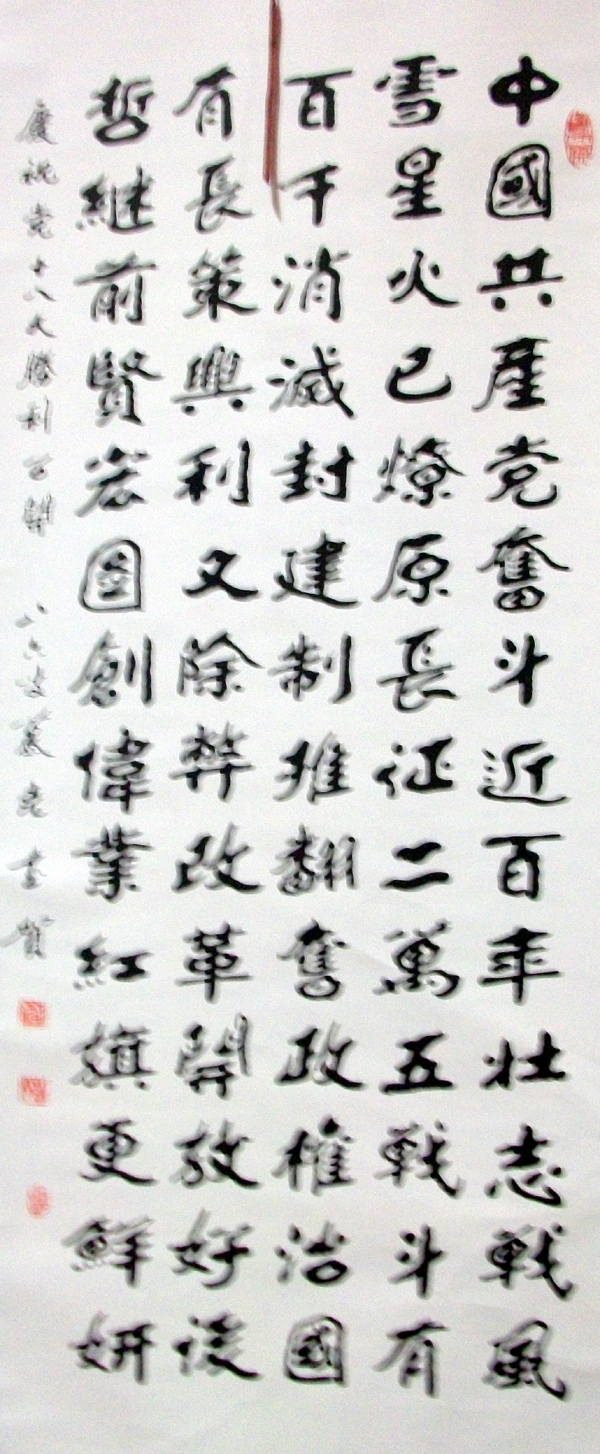 中國共產党奮斗近百年壮志戰風
雪星火已燎原長征二萬五戰斗有
百千消滅封建制推翻奮政權治國
有長策興利又除弊改革開放好後
哲継前賢宏圖創偉業紅旗更鮮妍
慶祝党十八大勝利召開 八六叟 書賀